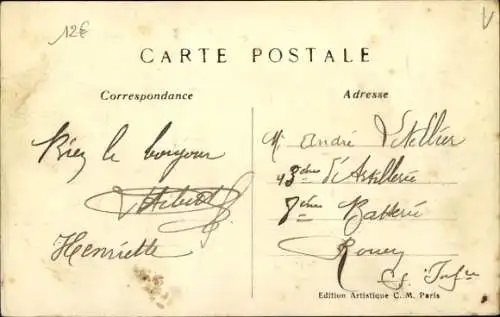 12€
V
CARTE POSTALE
Correspondance
Adresse
Bien le bonjour
Henriette
M. André
43ème d'Artillerie
7ème Batterie
Rouen
S. Infre
Edition Artistique C. M. Paris